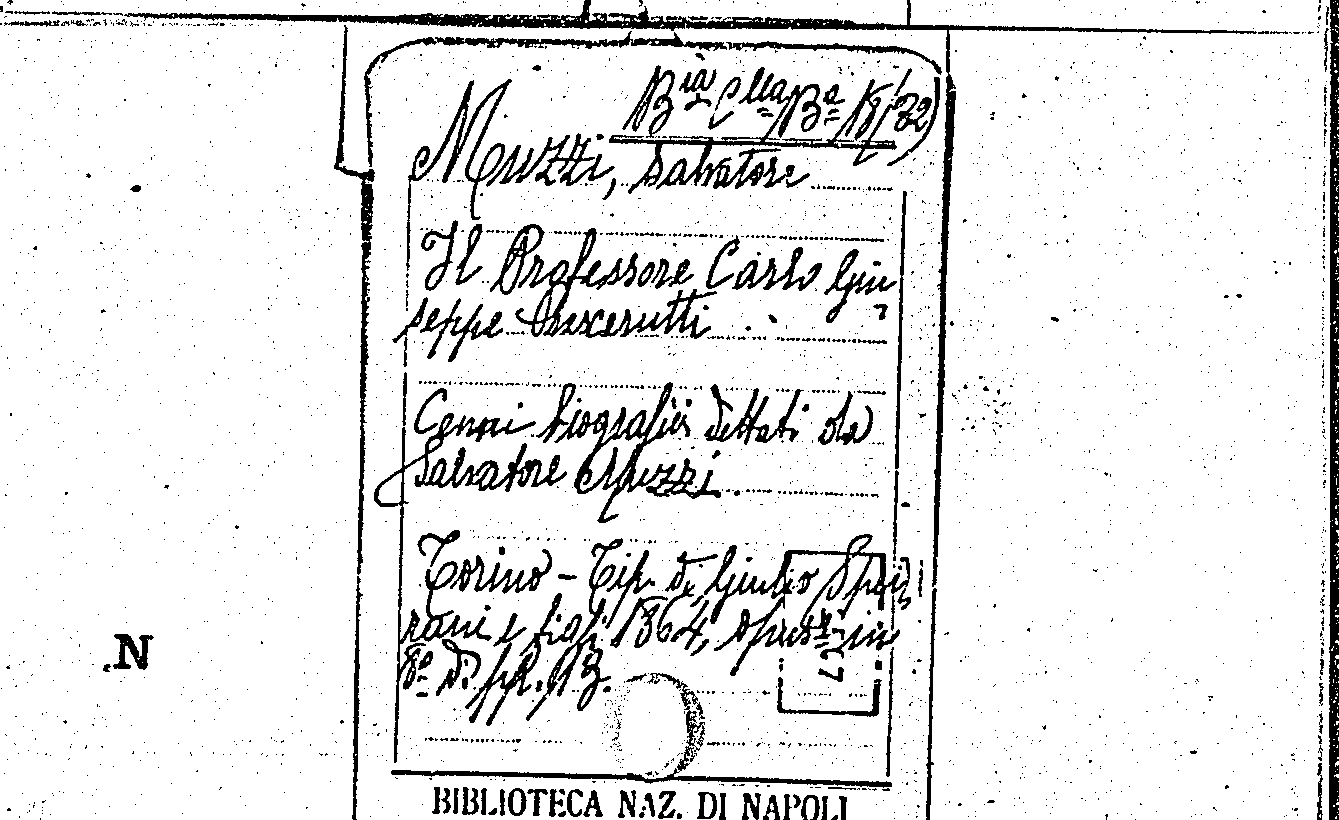 Muzzi, Salvatore
Il Professore Carlo Giu
seppe
Cenni biografici dettati da
Salvatore Muzzi.
Torino - Tip. di Giulio Spei
rani e figli 1864, opusc. in
8º di pp. 13.
N
BIBLIOTECA NAZ. DI NAPOLI